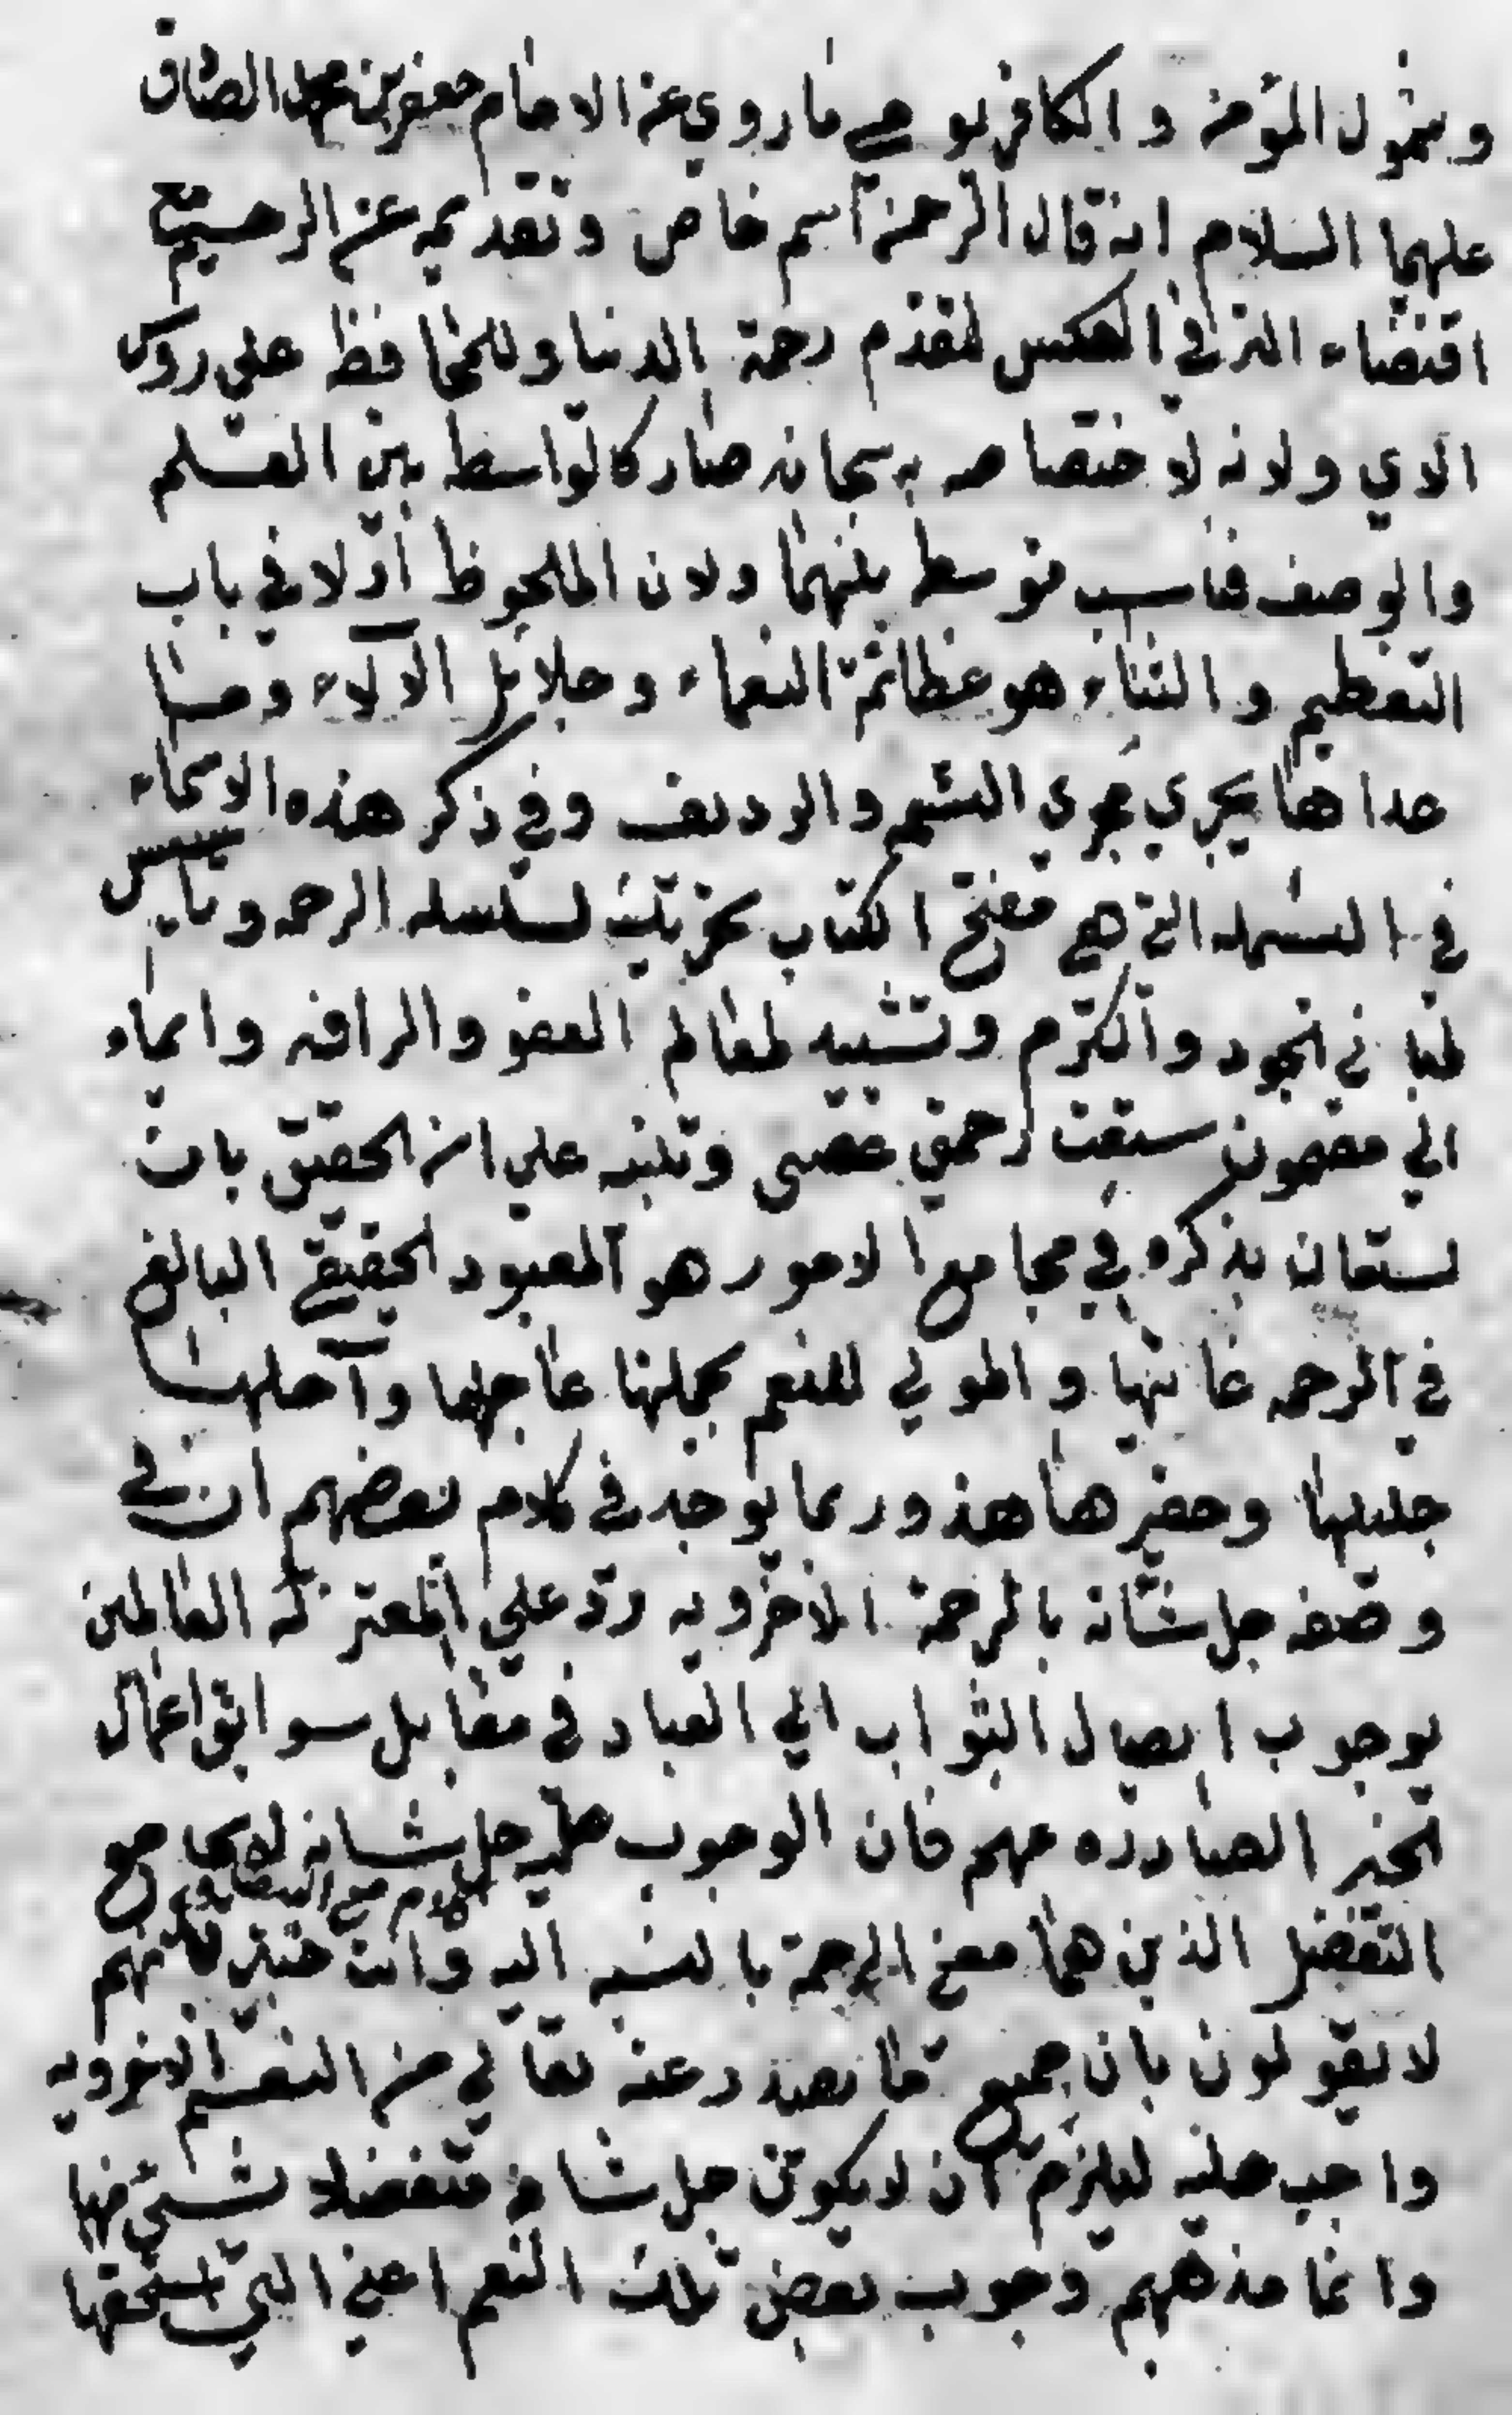 وشمول المؤمن والكافر يوضح ما روي عن الامام جعفر بن محمد الصادق
عليهما السلام انه قال الرحمن اسم خاص وتقديمه عن الرحيم مع
اقتضاء الترقي العكس لتقدم رحمة الدنيا وللمحافظ على روس
الاي ولانه لاختصاصه به سبحانه صار كالواسطه بين العلم
والوصف فناسب توسطه بينهما ولان الملحوظ اولا في باب
التعظيم والثناء هو عظائم النعماء وجلايل الآلاء وما
عداها يجري مجرى التتميم والرديف وفي ذكر هذه الاسماء
في البسمله التي هي مفتتح الكتاب تحريك لسلسله الرحمه وتاسيس
لمباني الجود والكرم وتشييد لمعالم العفو والرافه وايماء
الى مضمون سبقت رحمتي غضبي وتنبيه على ان الحقيق بان
يستعان بذكره في مجامع الامور هو المعبود الحقيقي البالغ
في الرحمه غايتها والمولي للنعم بجملتها عاجلها وآجلها
جليلها وحقيرها هذا وربما يوجد في كلام بعضهم ان في
وصفه جل شانه بالرحمة الاخرويه رد على المعتزله القائلين
بوجوب ايصال الثواب الى العباد في مقابل سوابق اعمال
الخير الصادره عنهم فان الوجوب عليه جل شانه لا يجامع
كلام مع البيضاوي
التفضل الذين هما معنى الرحمة بالنسبه اليه وانت خبير بانهم
لا يقولون بان جميع ما يصدر عنه تعالى من النعم الاخرويه
واجب عليه ليلزم ان لا يكون جل شانه متفضلا بشيئ منها
وانما مذهبهم وجوب بعض تلك النعم اعني التي استحقها